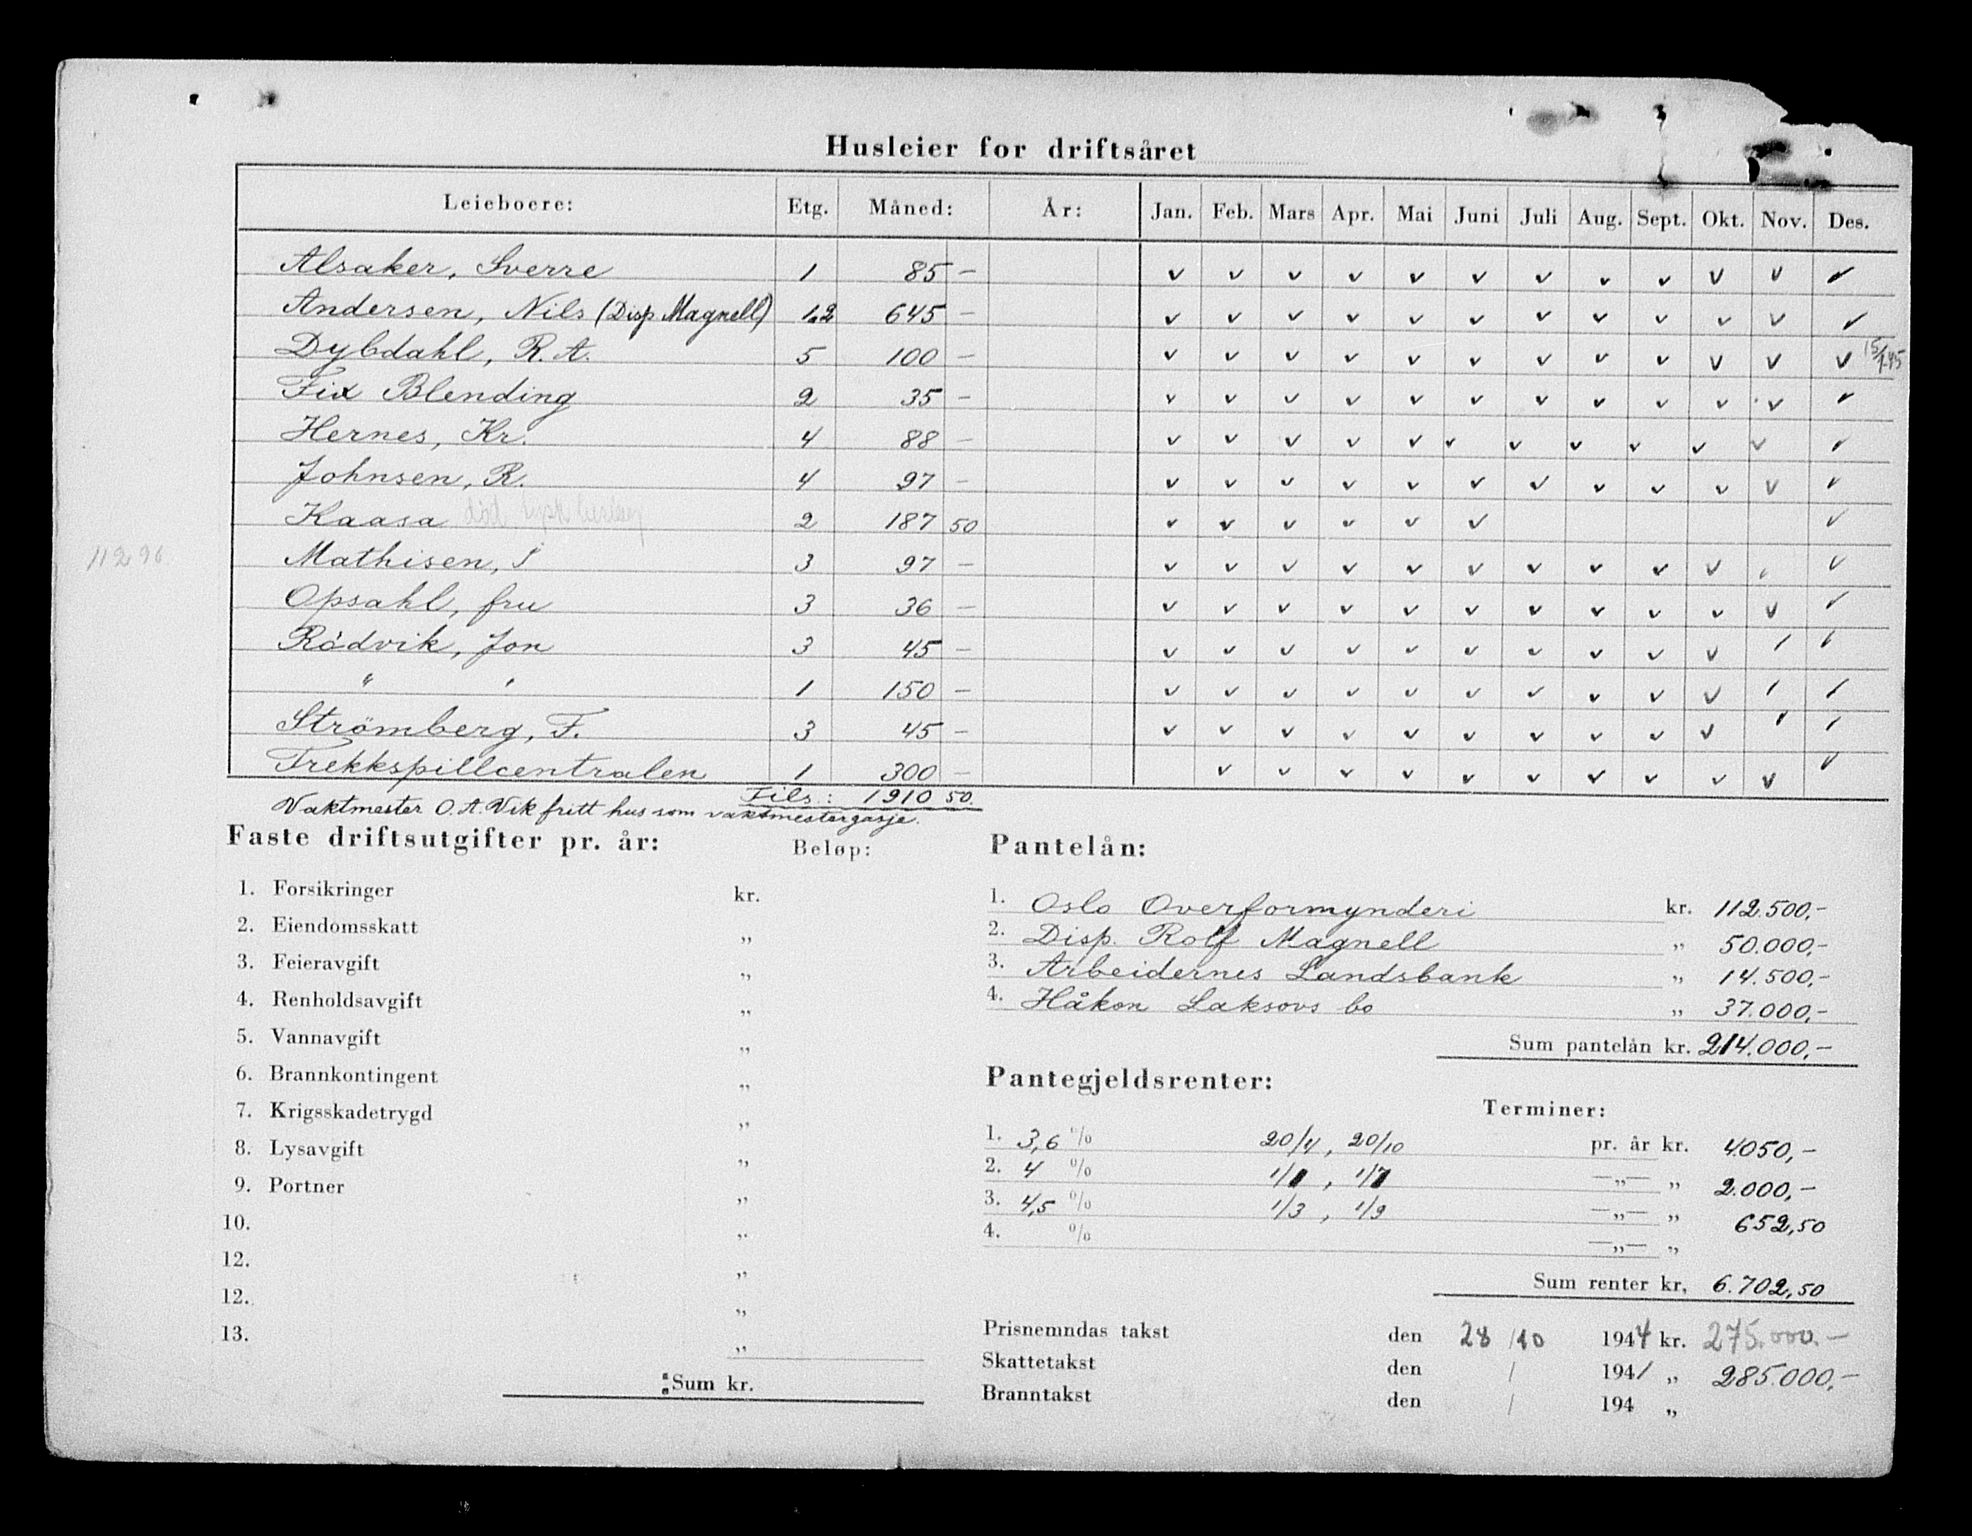 Husleier for driftsåret
Leieboere: Etg. Måned: År: Jan. Feb. Mars Apr. Mai Juni Juli Aug. Sept. Okt. Nov. Des.
Alsaker, Sverre 1 85 — v v v v v v v v v v v v
Andersen, Nils (Disp Magnell) 1.2 645 — v v v v v v v v v v v v
Dybdahl, R. A. 5 100 — v v v v v v v v v v v v
Fix Blending 2 35 — v v v v v v v v v v v v
Hernes, Kr. 4 88 — v v v v v v v v v v v v
Johnsen, R. 4 97 — v v v v v v v v v v v v
Kaasa død 2 187 50 v v v v v v v
11296
Mathisen, I 3 97 — v v v v v v v v v v v v
Opsahl, fru 3 36 — v v v v v v v v v v v v
Rödvik, Jon 3 45 — v v v v v v v v v v v v
" " 1 150 — v v v v v v v v v v v v
Strömberg, F. 3 45 — v v v v v v v v v v v v
Trekkspillcentralen 1 300 — v v v v v v v v v v v
Tils: 1910 50.
Vaktmester O. A. Vik fritt hus som vaktmestergasje.
Faste driftsutgifter pr. år: Beløp:
1. Forsikringer kr.
2. Eiendomsskatt „
3. Feieravgift „
4. Renholdsavgift „
5. Vannavgift „
6. Brannkontingent „
7. Krigsskadetrygd „
8. Lysavgift „
9. Portner „
10. „
12. „
12. „
13. „
Sum kr.
Pantelån:
1. Oslo Overformynderi kr. 112.500,-
2. Disp. Rolf Magnell „ 50.000,-
3. Arbeidernes Landsbank „ 14.500,-
4. Håkon Laksovs bo „ 37.000,-
Sum pantelån kr. 214.000,-
Pantegjeldsrenter:
Terminer:
1. 3,6 % 20/4, 20/10 pr. år kr. 4050,-
2. 4 % 1/1, 1/7 —„— „ 2.000,-
3. 4,5 % 1/3, 1/9 —„— „ 652,50
4. % —„— „
Sum renter kr, 6.702,50
Prisnemndas takst den 28/10 1944 kr. 275.000.-
Skattetakst den / 1941 „ 285.000,-
Branntakst den / 194 „